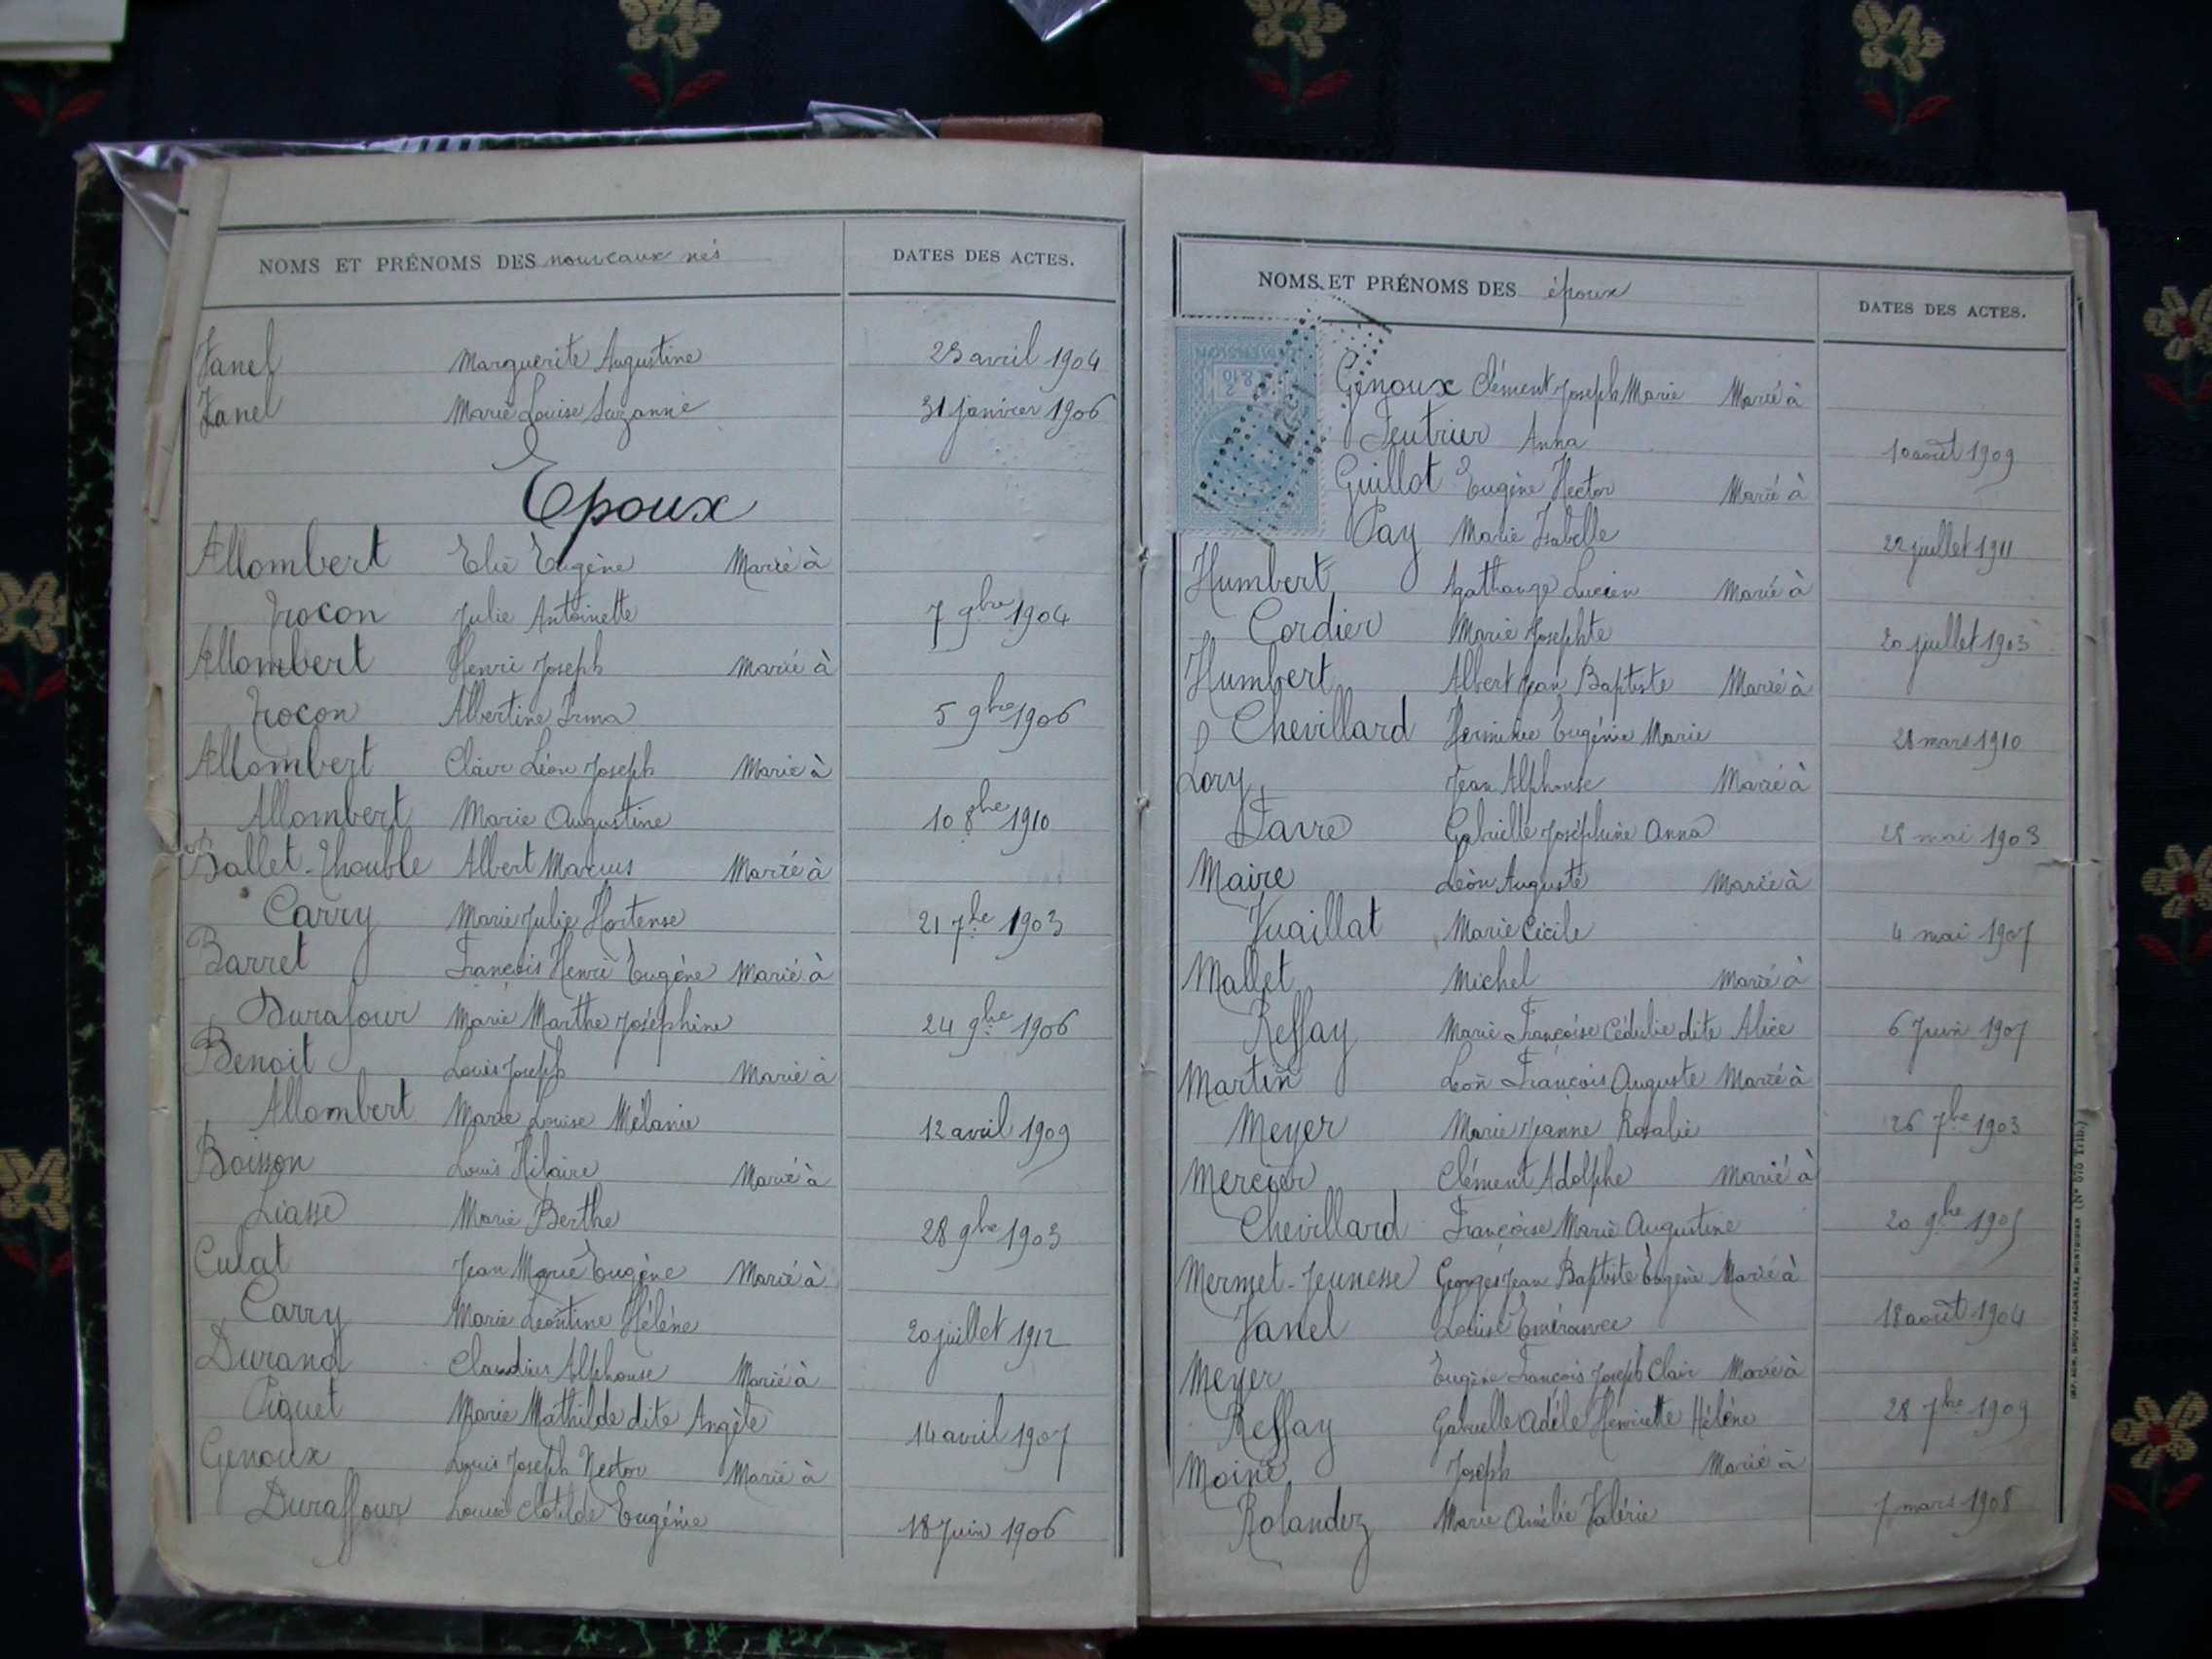 NOMS ET PRÉNOMS DES nouveaux nés DATES DES ACTES.
Vanel Marguerite Augustine 23 avril 1904
Vanel Marie Louise Suzanne 31 janvier 1906
Epoux
Allombert Elie Eugène Marié à
Trocon Julie Antoinette 7 9bre 1904
Allombert Henri Joseph Marié à
Trocon Albertine Irma 5 9bre 1906
Allombert Clair Léon Joseph Marié à
Allombert Marie Augustine 10 8bre 1910
Ballet-Thouble Albert Marius Marié à
Carry Marie Julie Hortense 21 7bre 1903
Barret François Henri Eugène Marié à
Durafour Marie Marthe Joséphine 24 9bre 1906
Benoit Louis Joseph Marié à
Allombert Marie Louise Mélanie 12 avril 1909
Boisson Louis Hilaire Marié à
Liasse Marie Berthe 28 9bre 1903
Culat Jean Marie Eugène Marié à
Carry Marie Léontine Hélène 20 juillet 1912
Durand Claudius Alphonse Marié à
Piquet Marie Mathilde dite Angèle 14 avril 1907
Genoux Louis Joseph Nestor Marié à
Duraffour Louise Clotilde Eugénie 18 Juin 1906
NOMS ET PRÉNOMS DES époux DATES DES ACTES.
Genoux Clément Joseph Marie Marié à
Feutrier Anna 10 août 1909
Guillot Eugène Hector Marié à
Pay Marie Isabelle 22 juillet 1911
Humbert Agathange Lucien Marié à
Cordier Marie Josephte 20 juillet 1903
Humbert Albert Jean Baptiste Marié à
Chevillard Herminie Eugénie Marie 28 mars 1910
Lory Jean Alphonse Marié à
Favre Gabrielle Joséphine Anna 28 mai 1903
Maire Léon Auguste Marié à
Vuaillat Marie Cécile 4 mai 1907
Mallet Michel Marié à
Reffay Marie Françoise Cédulie dite Alice 6 Juin 1907
Martin Léon François Auguste Marié à
Meyer Marie Jeanne Rosalie 26 7bre 1903
Mercier Clément Adolphe Marié à
Chevillard Françoise Marie Augustine 20 9bre 1905
Mermet-Jeunesse Georges Jean Baptiste Eugène Marié à
Vanel Louise Emérance 18 août 1904
Meyer Eugène François Joseph Clair Marié à
Reffay Gabrielle Adèle Henriette Hélène 28 7bre 1909
Moine Joseph Marié à
Rolandez Marie Amélie Valérie 7 mars 1908